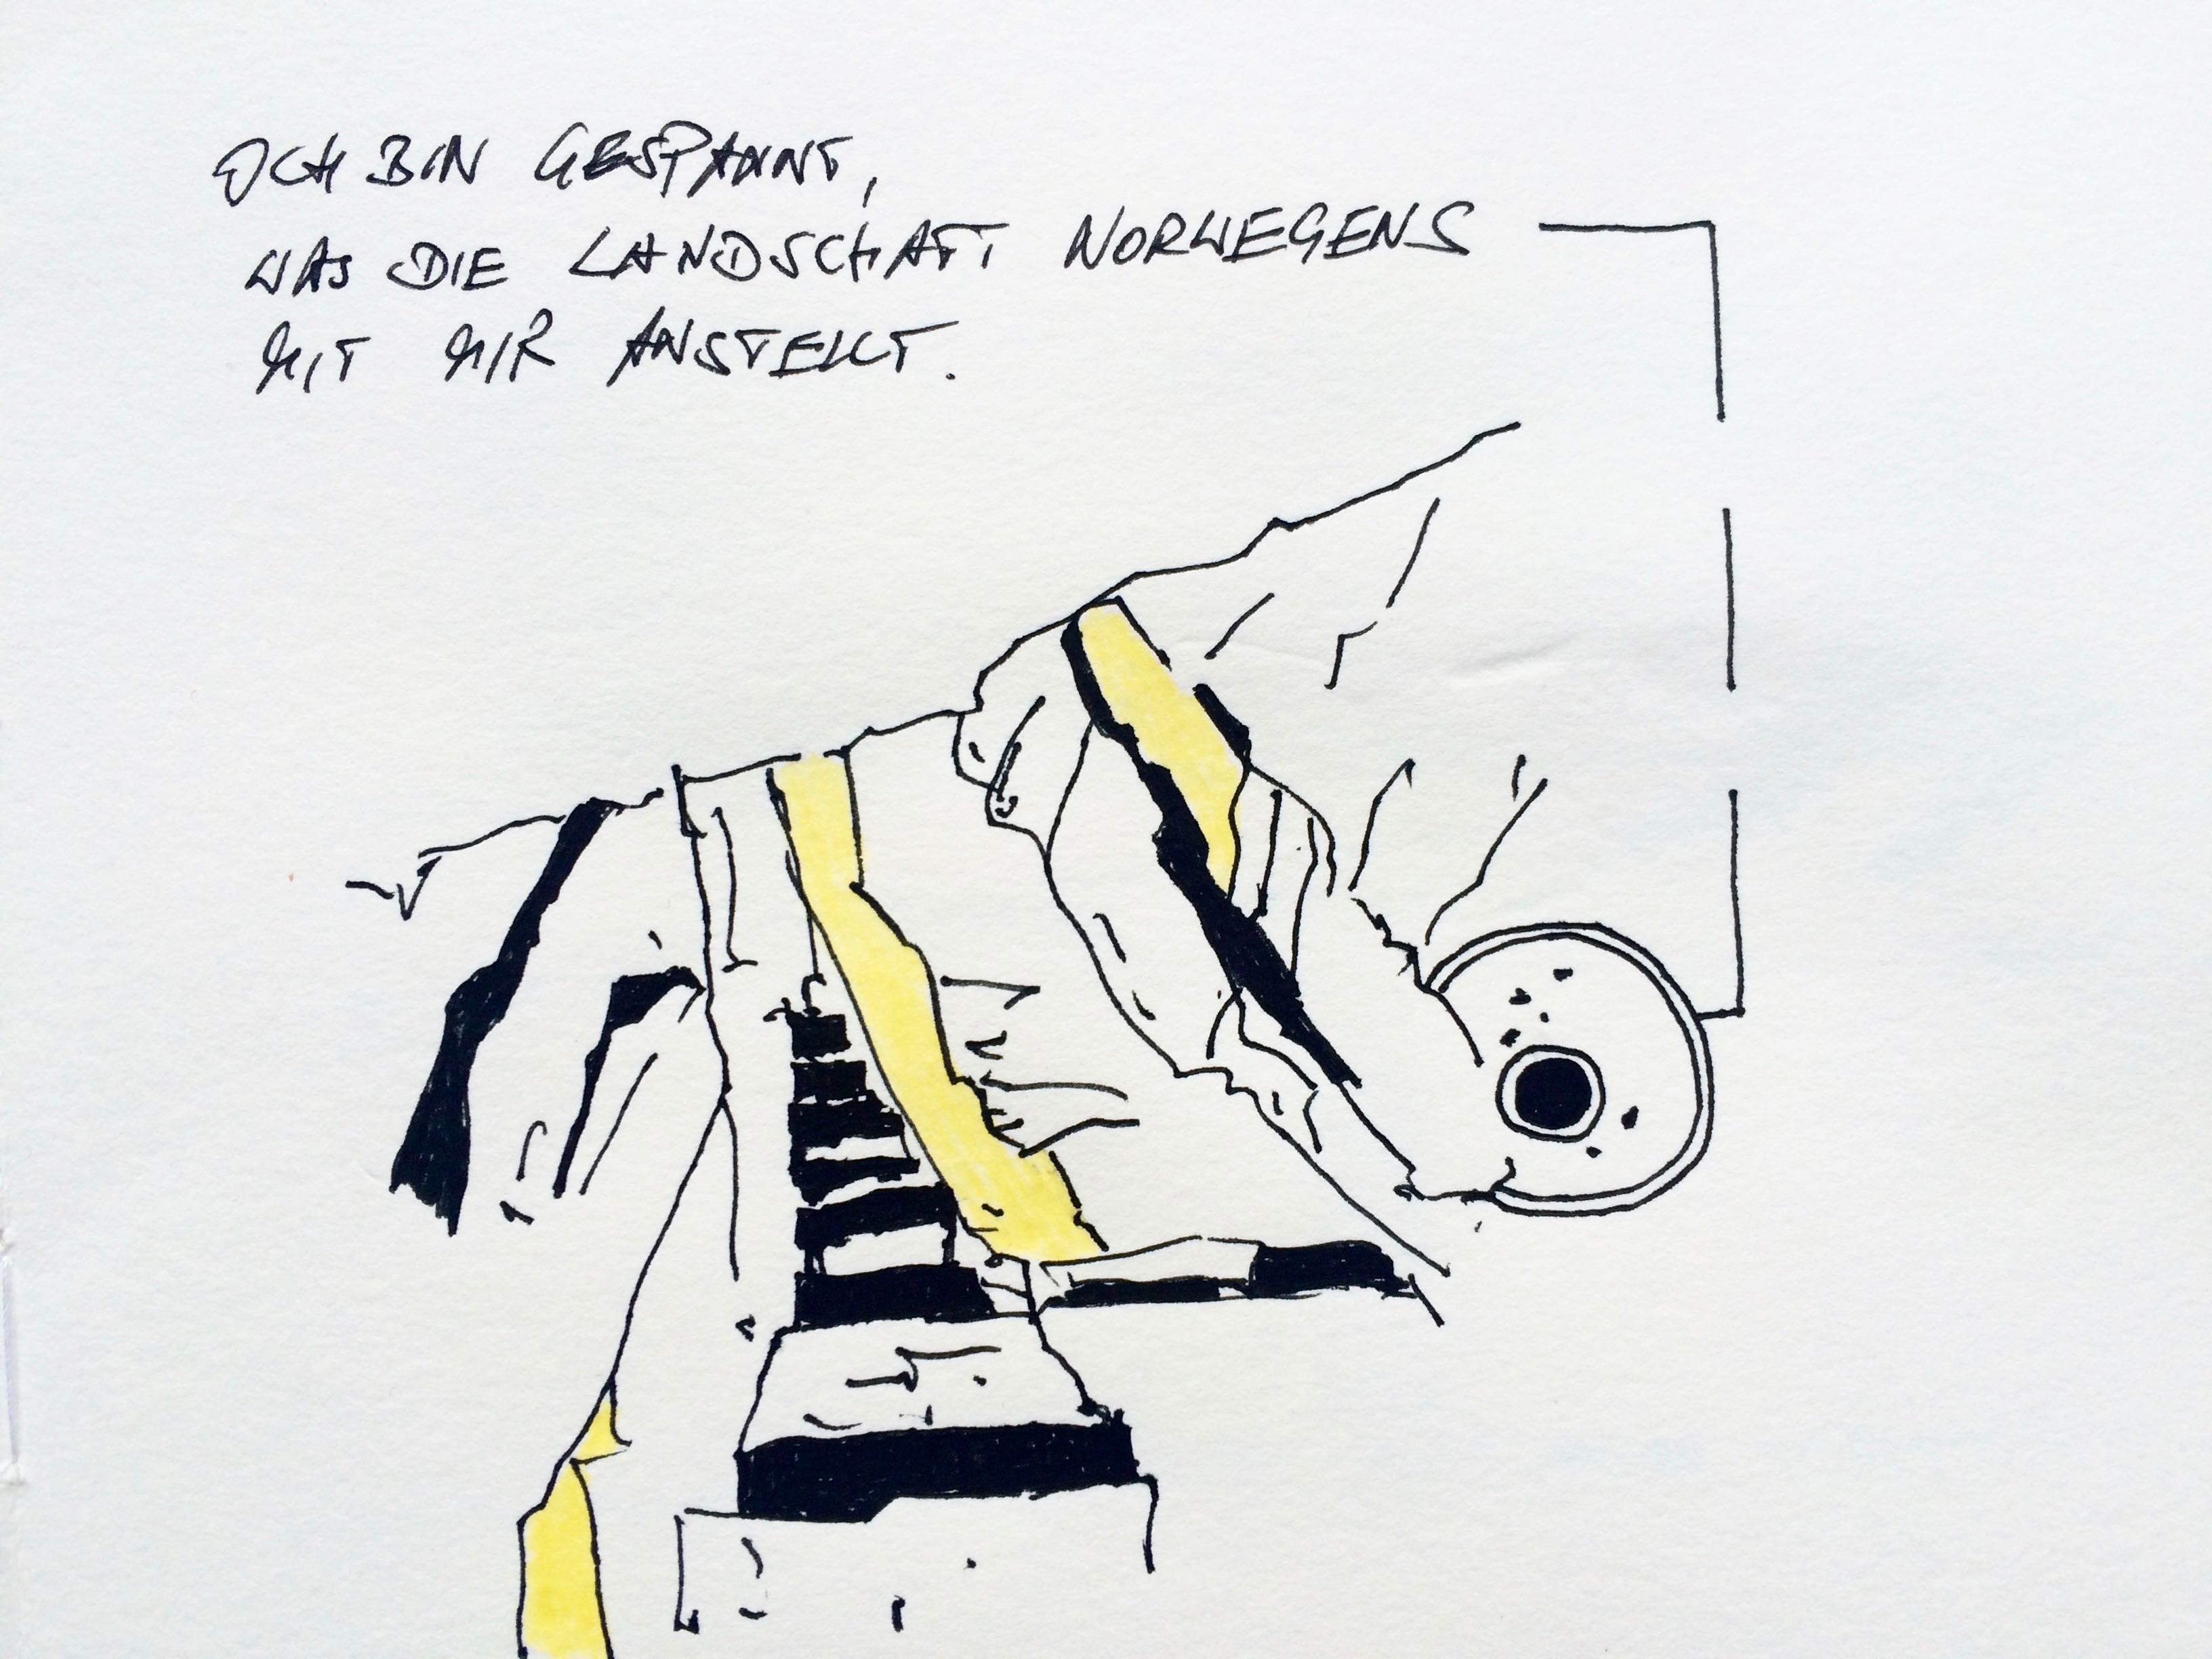 ICH BIN GESPANNT,
WAS DIE LANDSCHAFT NORWEGENS
MIT MIR ANSTELLT.